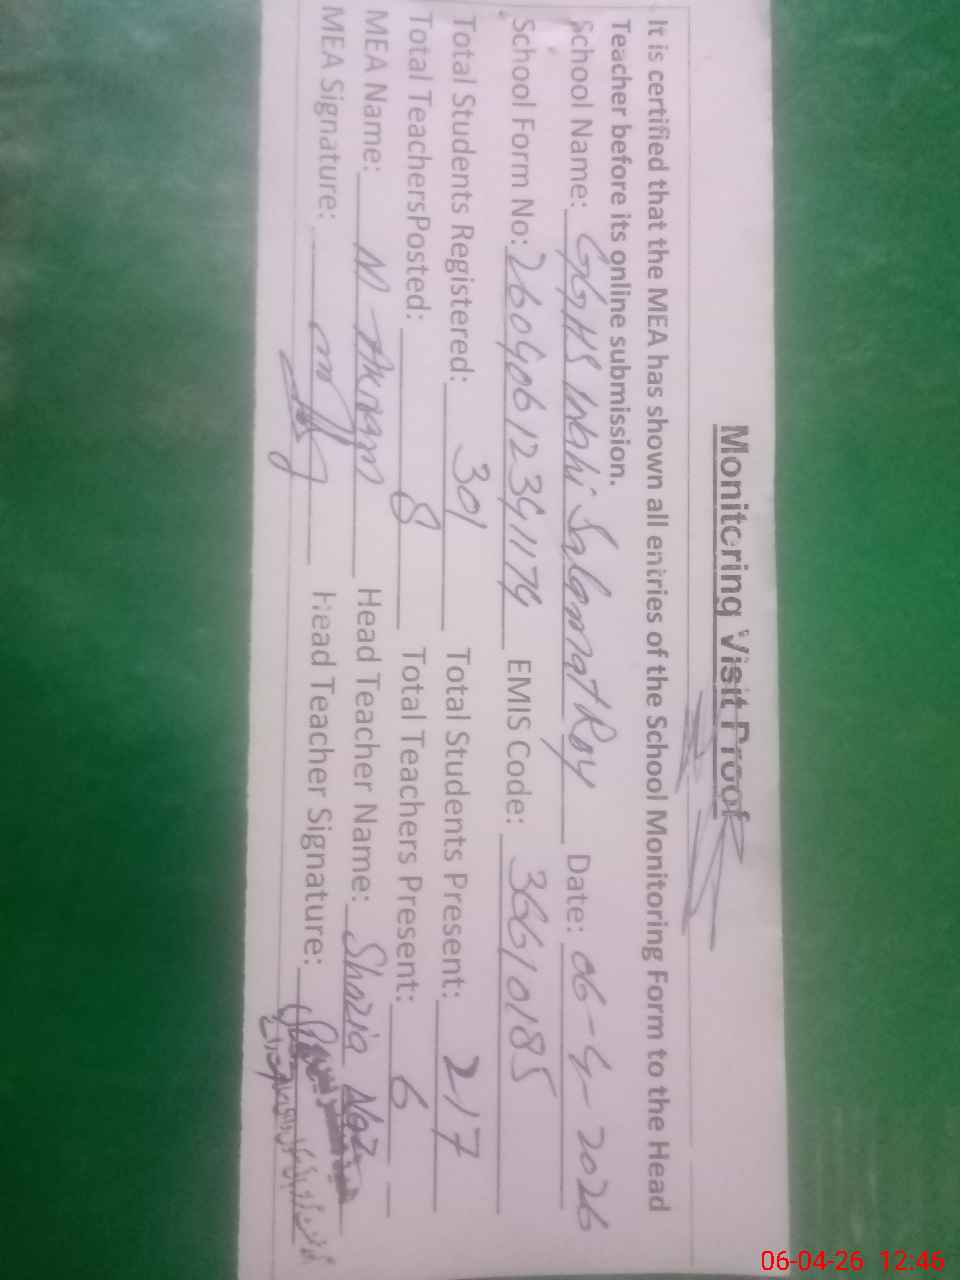 Monitoring Visit Proof
It is certified that the MEA has shown all entries of the School Monitoring Form to the Head
Teacher before its online submission.
School Name: GGHS Wahi Salamat Ray Date: 06-4-2026
School Form No: 26040612341174 EMIS Code: 36610185
Total Students Registered: 301 Total Students Present: 217
Total TeachersPosted: 8 Total Teachers Present: 6
MEA Name: M Akram Head Teacher Name: Shazia Naz
MEA Signature: Head Teacher Signature:
06-04-26 12:46